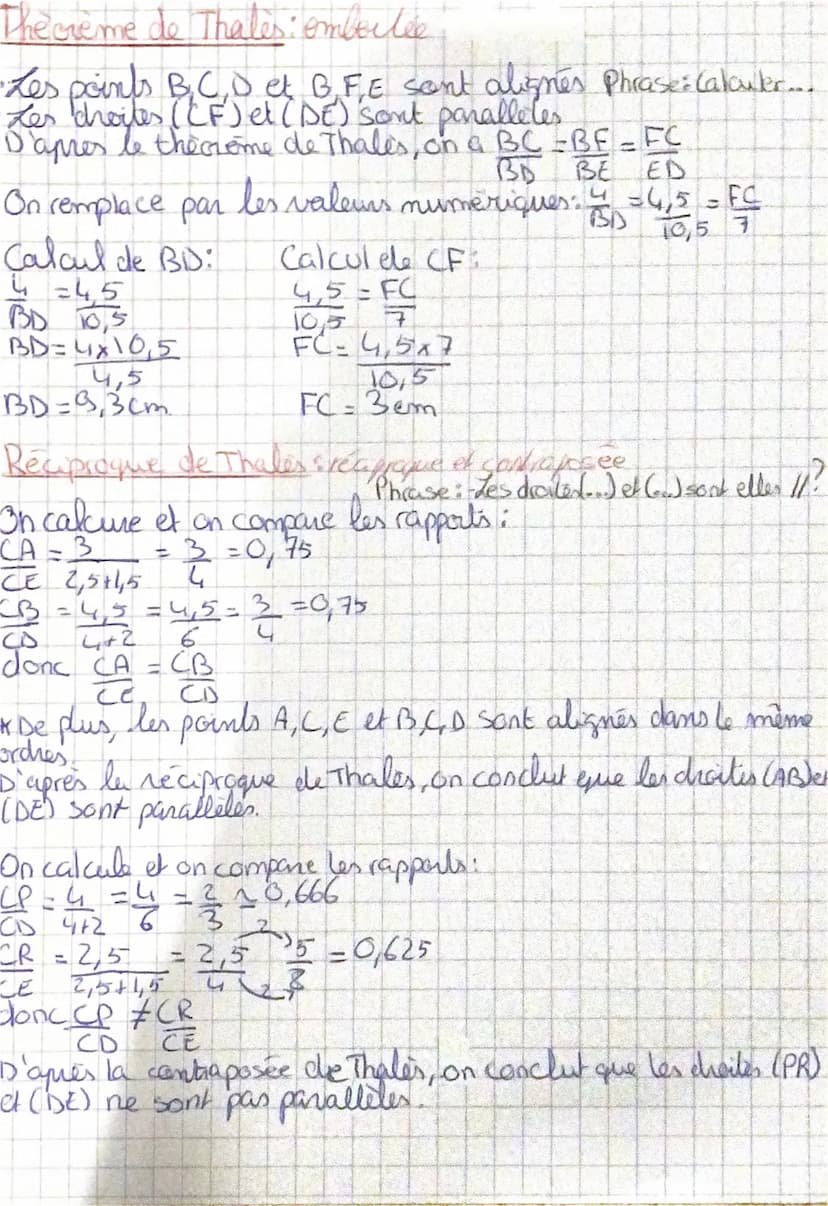 Théorème de Thalès : emboitée
Les points B,C,D et B,F,E sont alignés Phrase : Calculer...
Les droites (CF) et (DE) sont parallèles
D'après le théorème de Thalès, on a BC/BD = BF/BE = FC/ED
On remplace par les valeurs numériques : 4/BD = 4,5/10,5 = FC/7
Calcul de BD : Calcul de CF :
4/BD = 4,5/10,5 4,5/10,5 = FC/7
BD = 4x10,5/4,5 FC = 4,5x7/10,5
BD = 9,3cm FC = 3cm
Réciproque de Thalès : réciproque et contraposée
Phrase : Les droites (...) et (...) sont elles // ?
On calcule et on compare les rapports :
CA/CE = 3/2,5+1,5 = 3/4 = 0,75
CB/CD = 4,5/4+2 = 4,5/6 = 3/4 = 0,75
donc CA/CE = CB/CD
* De plus, les points A,C,E et B,C,D sont alignés dans le même
ordres.
D'après la réciproque de Thalès, on conclut que les droites (AB) et
(DE) sont parallèles.
On calcule et on compare les rapports :
CP/CD = 4/4+2 = 4/6 = 2/3 ≃ 0,666
CR/CE = 2,5/2,5+1,5 = 2,5/4 5/8 = 0,625
2
2
donc CP/CD ≠ CR/CE
D'après la contraposée de Thalès, on conclut que les droites (PR)
et (DE) ne sont pas parallèles.